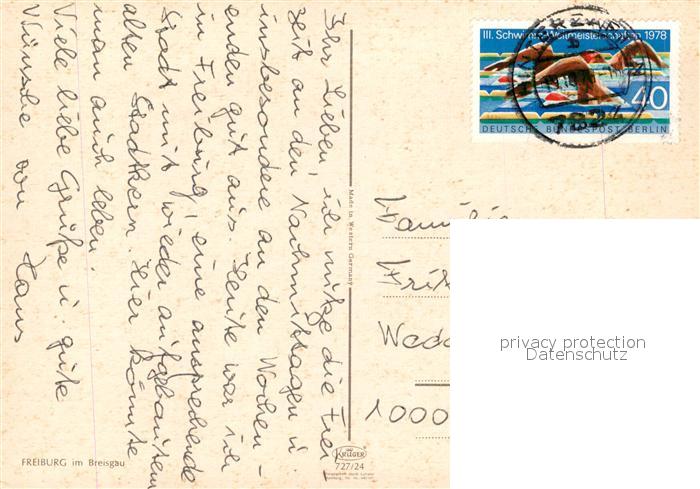 Ihr Lieben, ich nutze die Frei-
zeit an den Nachmittagen u.
insbesondere an den Wochen-
enden gut aus. Heute war ich
in Freiburg, eine ansprechende
Stadt mit wieder aufgebautem
alten Stadtkern. Hier könnte
man auch leben.
Viele liebe Grüße u. gute
Wünsche von Hans
FREIBURG im Breisgau
Made in Western Germany
KRÜGER
727/24
III. Schwimm-Weltmeisterschaften 1978
40
DEUTSCHE BUNDESPOST BERLIN
Familie
1000
privacy protection
Datenschutz